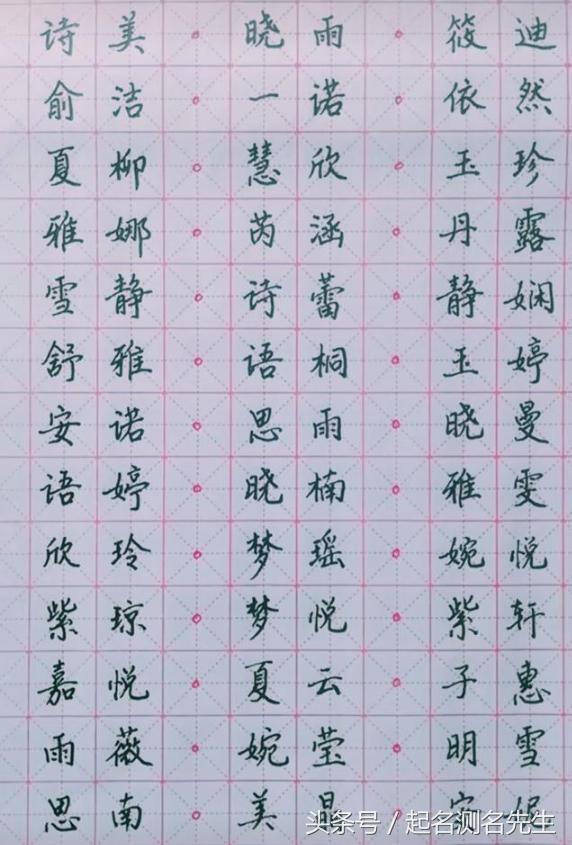 诗美。晓雨。筱迪
俞洁。一诺。依然
夏柳。慧欣。玉珍
雅娜。芮涵。丹露
雪静。诗蕾。静娴
舒雅。语桐。玉婷
安诺。思雨。晓曼
语婷。晓楠。雅雯
欣玲。梦瑶。婉悦
紫琼。梦悦。紫轩
嘉悦。夏云。子惠
雨薇。婉莹。明雪
思南。美
头条号/起名测名先生